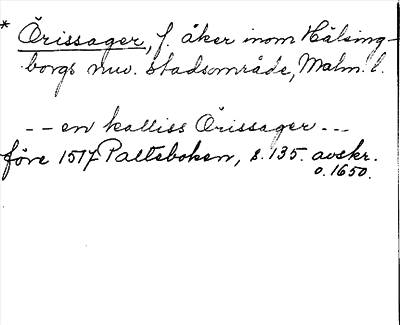 * Örissager, f. åker inom Hälsing-
borgs nuv. stadsområde, Malm. l.
-- en kalliss Örissager ---
före 1517 Palteboken, s. 135. avskr.
o. 1650.